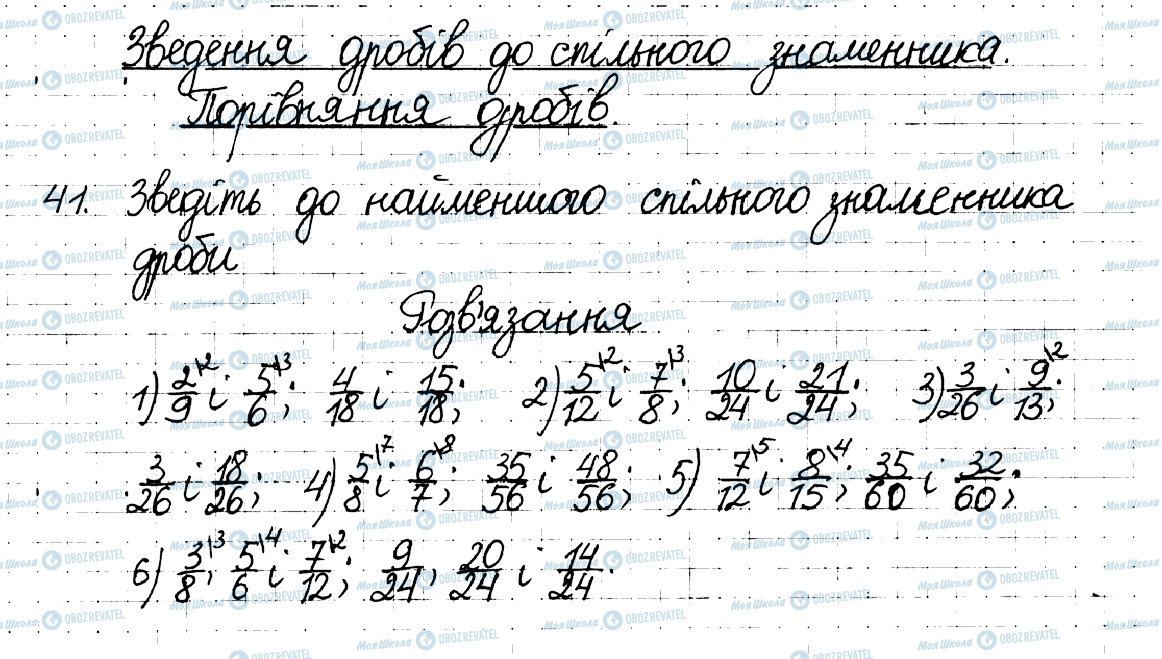 Зведення дробів до спільного знаменника.
Порівняння дробів.
41. Зведіть до найменшого спільного знаменника
дроби
Розв'язання
1) 2/9 \2 і 5/6 \3; 4/18 і 15/18; 2) 5/12 \2 і 7/8 \3; 10/24 і 21/24; 3) 3/26 і 9/13 \2;
3/26 і 18/26; 4) 5/8 \7 і 6/7 \8; 35/56 і 48/56; 5) 7/12 \5 і 8/15 \4; 35/60 і 32/60;
6) 3/8 \3, 5/6 \4 і 7/12 \2; 9/24, 20/24 і 14/24.
Моя Школа OBOZREVATEL